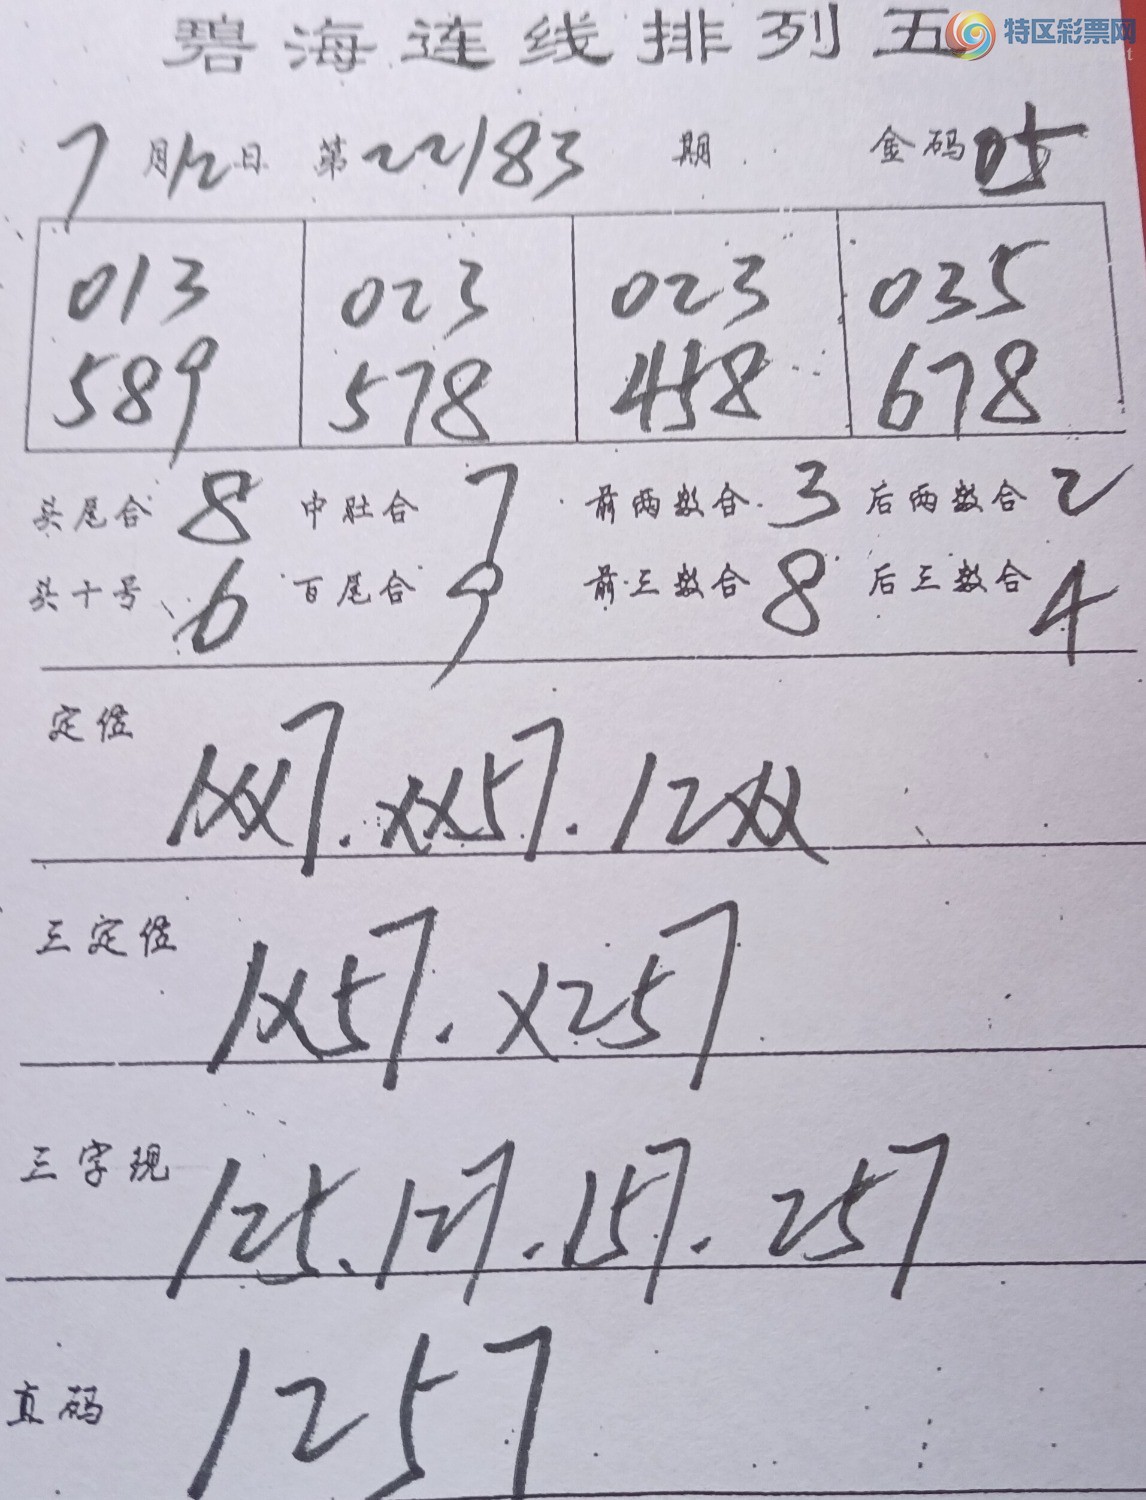 碧海连线排列五
特区彩票网
7月12日 第22183期 金码05
013 023 023 035
589 578 458 678
头尾合8 中肚合7 前两数合3 后两数合2
头十号6 百尾合9 前三数合8 后三数合4
定位
1XX7.XX57.12XX
三定位
1X57.X257
三字现
125.127.157.257
直码
1257